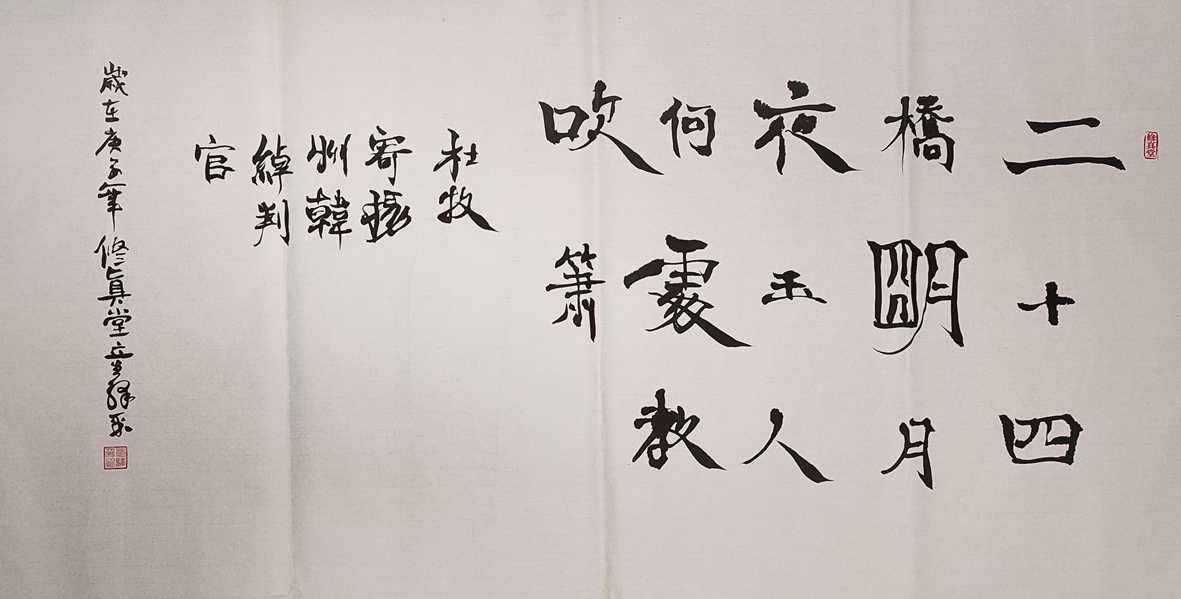 修真堂
二十四
橋明月
夜玉人
何處教
吹簫
杜牧
寄揚
州韓
綽判
官
歲在庚子年修真堂